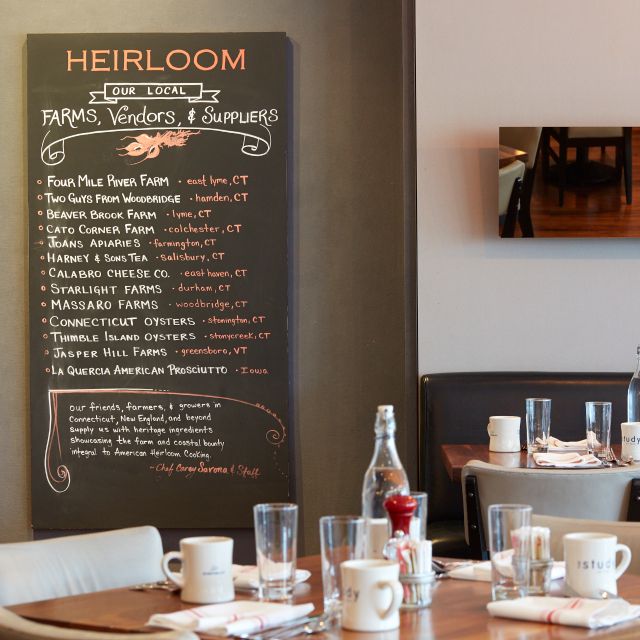 HEIRLOOM
OUR LOCAL
FARMS, Vendors, & SUPPLIERS
FOUR MILE RIVER FARM • east lyme, CT
TWO GUYS FROM WOODBRIDGE • hamden, CT
BEAVER BROOK FARM • lyme, CT
CATO CORNER FARM • colchester, CT
JOANS APIARIES • farmington, CT
HARNEY & SONS TEA • Salisbury, CT
CALABRO CHEESE CO. • east haven, CT
STARLIGHT FARMS • durham, CT
MASSARO FARMS • woodbridge, CT
CONNECTICUT OYSTERS • stonington, CT
THIMBLE ISLAND OYSTERS • stonycreek, CT
JASPER HILL FARMS • greensboro, VT
LA QUERCIA AMERICAN PROSCIUTTO • Iowa
our friends, farmers, & growers in
Connecticut, New England, and beyond
supply us with heritage ingredients
showcasing the farm and coastal bounty
integral to American Heirloom Cooking.
- Chef Carey Savona & Staff
study
study